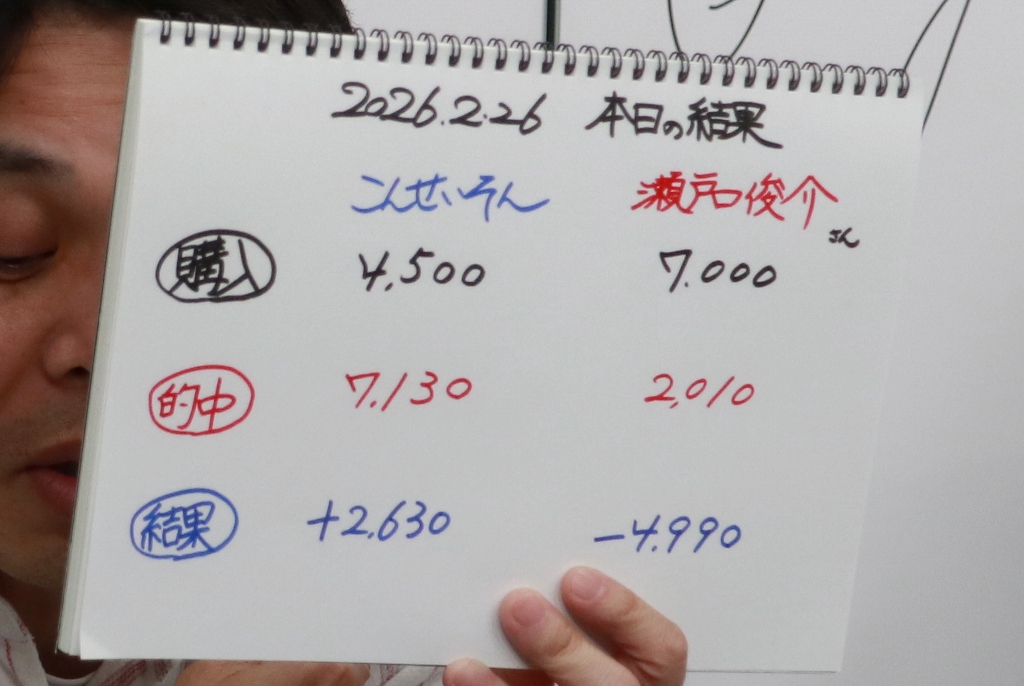 2026.2.26 本日の結果
こんせいそん 瀬戸口俊介さん
購入 4,500 7.000
的中 7,130 2,010
結果 +2,630 -4.990